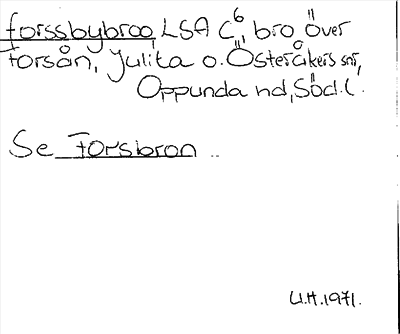 Forssbybroo, LSA C6, bro över
Forsån, Julita o. Österåkers snr,
Oppunda hd, Söd.l.
Se Forsbron ..
U.H. 1971.